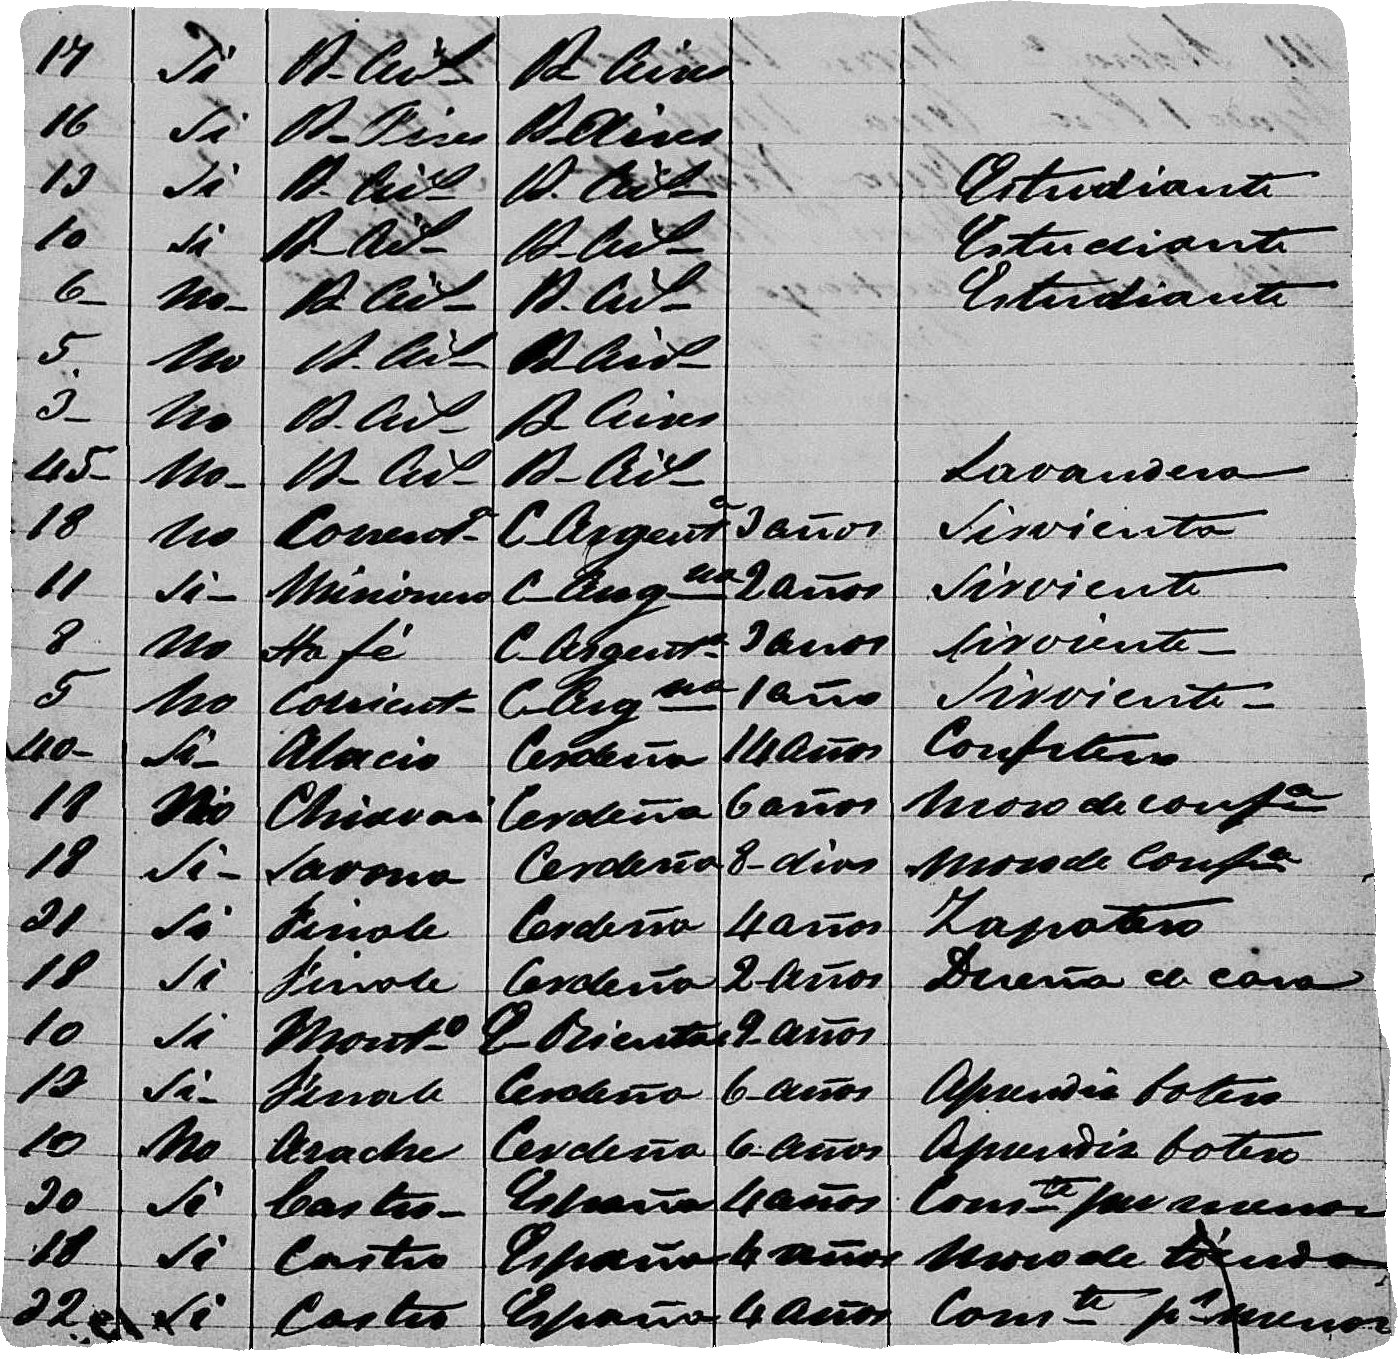 17 Si B- Ais- B- Aires
16 Si B- Aires B- Aires
13 Si B- Ais- B. Ais- Estudiante
10 Si B- Ais- B- Ais- Estudiante
6- No- B- Ais- B. Ais- Estudiante
5 No B. Ais- B. Ais-
3- No B- Ais- B- Aires
45- No- B- Ais- B- Ais- Lavandera
18 No Corrent- C. Argent a 3 años Sirvienta
11 Si- Misionero C- Arg na 2 años Sirviente
8 No Sta fé C. Argent a 3 anos Sirviente-
5 No Corrient- C- Arg na 1 año Sirviente-
40- Si- Alacio Cerdeña 14 años Confitero
18 No Chiavari Cerdeña 6 años Moso de conf a
18 Si- Savona Cerdeña 8- dias Moso de Conf a
21 Si Finale Cerdeña 4 años Zapatero
18 Si Finale Cerdeña 2 años Dueña de casa
10 Si Mont o E- Oriental 9 años
12 Si- Finale Cerdeña 6 años Aprendis botero
10 No Arache Cerdeña 6 años Aprendis botero
20 Si Castro- España 4 años Coms te por menor
18 Si Castro España 4 años Moso de tienda
22 Si Castro España 4 años Coms te pr menor